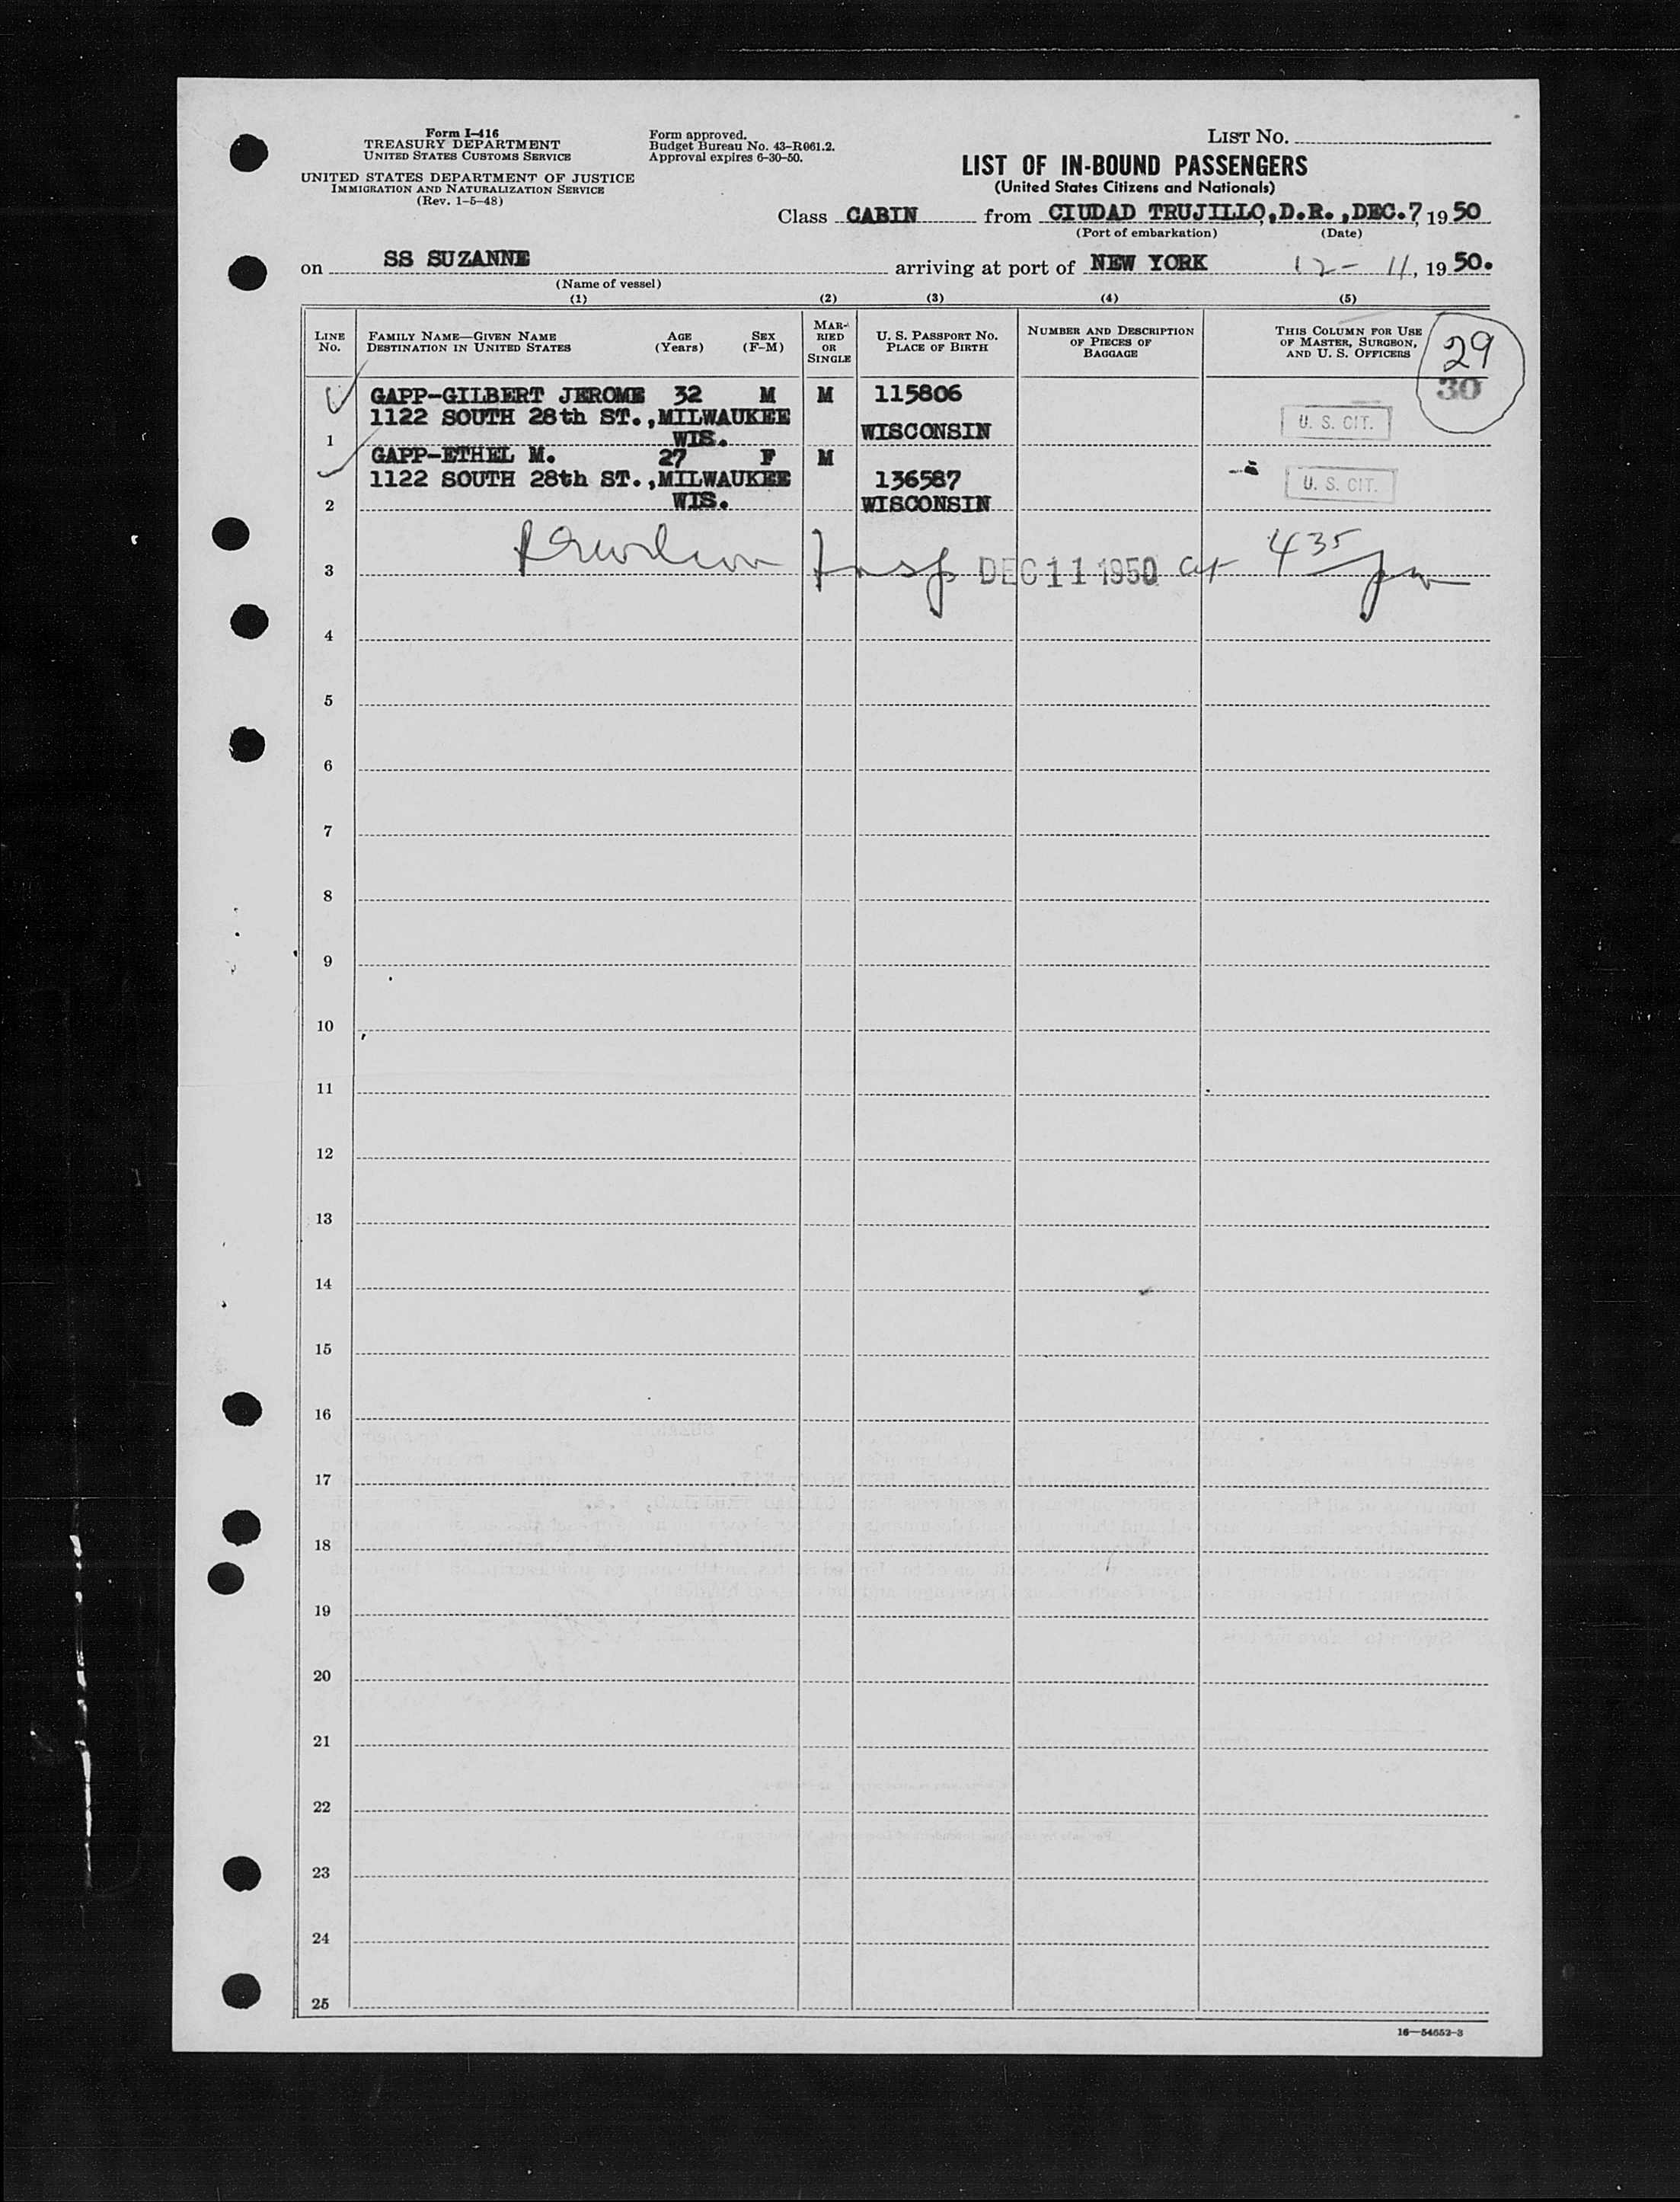 Form I-416
TREASURY DEPARTMENT
UNITED STATES CUSTOMS SERVICE
UNITED STATES DEPARTMENT OF JUSTICE
IMMIGRATION AND NATURALIZATION SERVICE
(Rev. 1-5-48)
Form approved.
Budget Bureau No. 43-R061.2.
Approval expires 6-30-50.
LIST No.
LIST OF IN-BOUND PASSENGERS
(United States Citizens and Nationals)
Class CABIN from CIUDAD TRUJILLO,D.R.,DEC.7, 19 50
(Port of embarkation) (Date)
on SS SUZANNE arriving at port of NEW YORK 12-11, 19 50.
(Name of vessel)
(1) (2) (3) (4) (5)
LINE No.
FAMILY NAME—GIVEN NAME AGE SEX
DESTINATION IN UNITED STATES (Years) (F-M)
MAR-
RIED
OR
SINGLE
U. S. PASSPORT NO.
PLACE OF BIRTH
NUMBER AND DESCRIPTION
OF PIECES OF
BAGGAGE
THIS COLUMN FOR USE
OF MASTER, SURGEON,
AND U. S. OFFICERS
29
30
GAPP-GILBERT JEROME 32 M M 115806
1122 SOUTH 28th ST.,MILWAUKEE WISCONSIN U. S. CIT.
1 WIS.
GAPP-ETHEL M. 27 F M
1122 SOUTH 28th ST.,MILWAUKEE 136587 U. S. CIT.
2 WIS. WISCONSIN
3 Insp DEC 11 1950 at 435 pm
4
5
6
7
8
9
10
11
12
13
14
15
16
17
18
19
20
21
22
23
24
25
16—54652-3